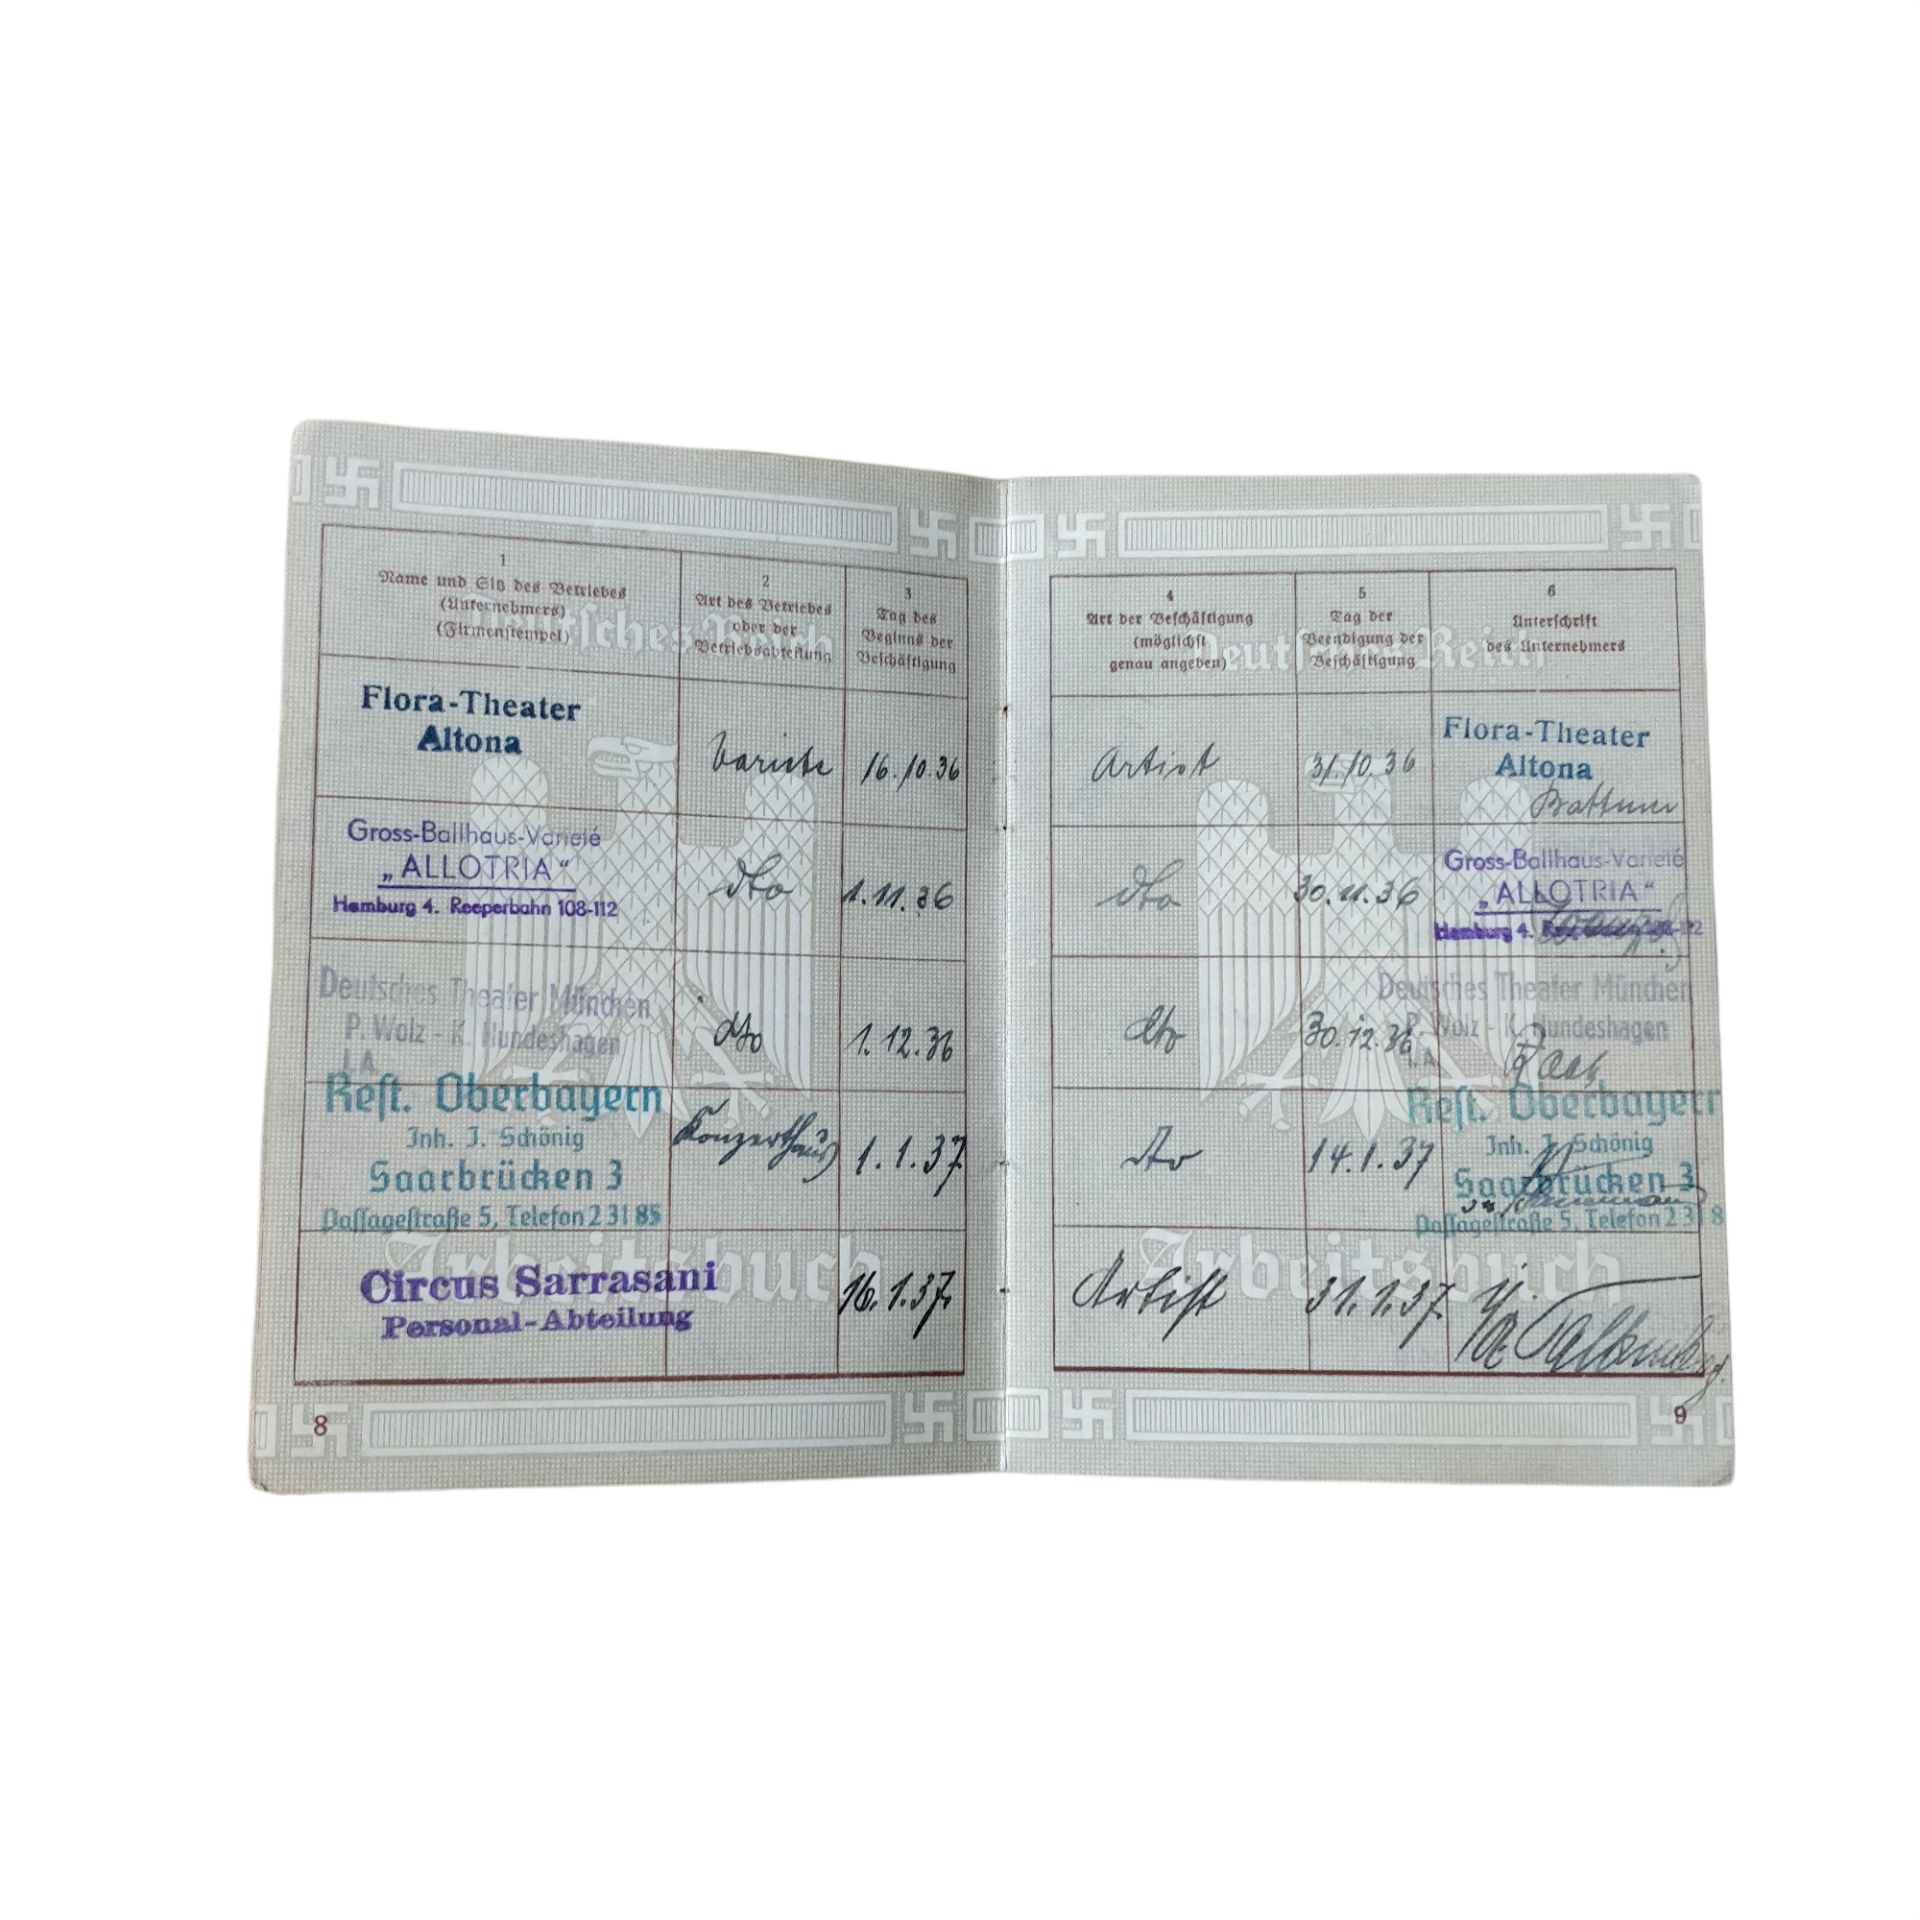 Deutsches Reich
1
Name und Sitz des Betriebes
(Unternehmers)
(Firmenstempel)
2
Art des Betriebes
oder der
Betriebsabteilung
3
Tag des
Beginns der
Beschäftigung
Flora-Theater
Altona
Variete
16.10.36
Gross-Ballhaus-Varieté
„ALLOTRIA“
Hamburg 4. Reeperbahn 108-112
dto
1.11.36
Deutsches Theater München
P. Wolz - K. Hundeshagen
I.A.
dto
1.12.36
Rest. Oberbayern
Inh. J. Schönig
Saarbrücken 3
Passagestraße 5, Telefon 2 31 85
Konzerthaus
1.1.37
Arbeitsbuch
Circus Sarrasani
Personal-Abteilung
16.1.37.
8
Deutsches Reich
4
Art der Beschäftigung
(möglichst
genau angeben)
5
Tag der
Beendigung der
Beschäftigung
6
Unterschrift
des Unternehmers
Artist
31.10.36
Flora-Theater
Altona
dto
30.11.36
Gross-Ballhaus-Varieté
„ALLOTRIA“
Hamburg 4.
dto
30.12.36
Deutsches Theater München
P. Wolz - K. Hundeshagen
I.A.
dto
14.1.37
Rest. Oberbayern
Inh. J. Schönig
Saarbrücken 3
Passagestraße 5, Telefon 2 31 8
Arbeitsbuch
Artist
31.1.37.
9